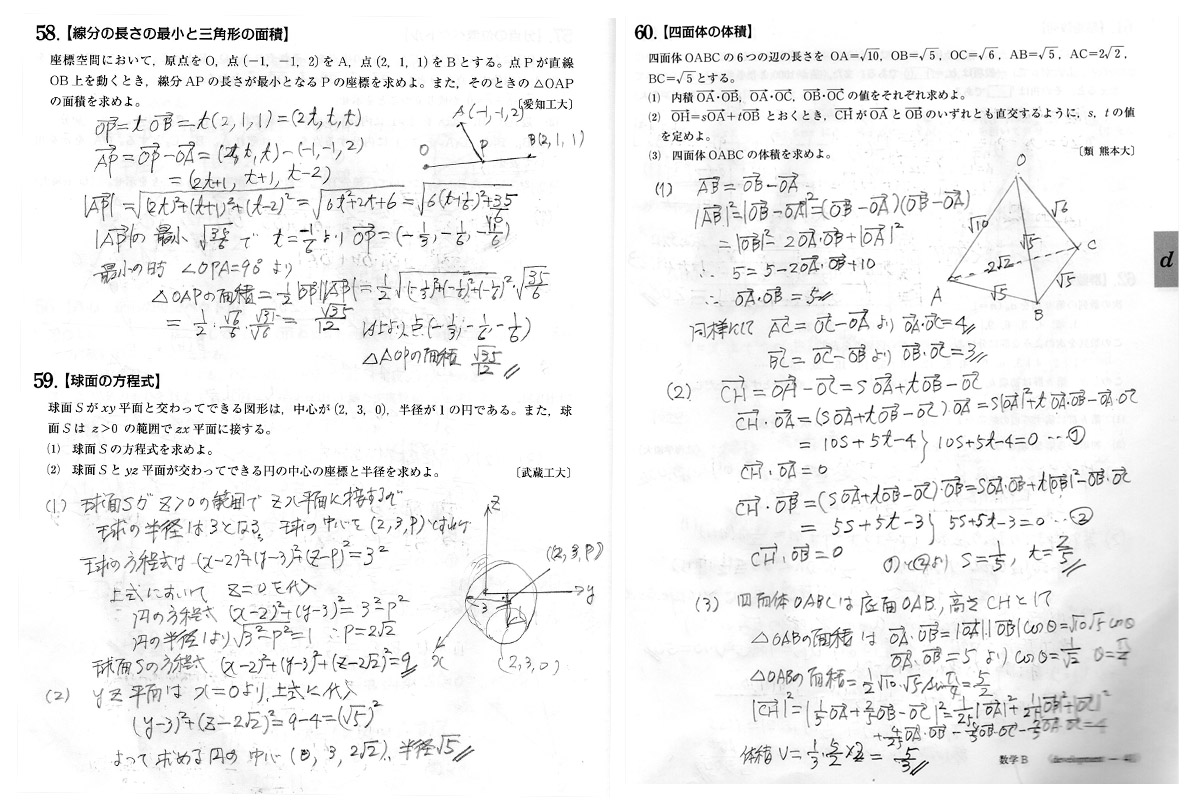 58.【線分の長さの最小と三角形の面積】
座標空間において，原点をO，点(−1，−1，2)をA，点(2，1，1)をBとする。点Pが直線
OB上を動くとき，線分APの長さが最小となるPの座標を求めよ。また，そのときの△OAP
の面積を求めよ。 〔愛知工大〕
OP=tOB=t(2,1,1)=(2t,t,t)
AP=OP-OA=(2t,t,t)-(-1,-1,2)
=(2t+1, t+1, t-2)
A(-1,-1,2)
O
P
B(2,1,1)
|AP|=√(2t+1)²+(t+1)²+(t-2)²=√6t²+2t+6=√6(t+1/6)²+35/6
|AP|の最小 √35/6 で t=-1/6より OP=(-1/3,-1/6,-1/6)
最小の時 ∠OPA=90°より
△OAPの面積=1/2|OP||AP|=1/2√(-1/3)²+(-1/6)²+(-1/6)²・√35/6
=1/2・√6/6・√35/√6=√35/12
以上より点(-1/3,-1/6,-1/6)
△AOPの面積 √35/12
59.【球面の方程式】
球面Sがxy平面と交わってできる図形は，中心が(2，3，0)，半径が1の円である。また，球
面Sはz>0の範囲でzx平面に接する。
(1) 球面Sの方程式を求めよ。
(2) 球面Sとyz平面が交わってできる円の中心の座標と半径を求めよ。 〔武蔵工大〕
(1) 球面Sがz>0の範囲でzx平面に接するので
球の半径は3となる，球の中心を(2,3,P)とすれば
球の方程式は(x-2)²+(y-3)²+(z-P)²=3²
上式において z=0を代入
円の方程式 (x-2)²+(y-3)²=3²-P²
円の半径1より√3²-P²=1 ∴P=2√2
球面Sの方程式 (x-2)²+(y-3)²+(z-2√2)²=9
z
(2,3,P)
3
y
x
(2,3,0)
(2) yz平面は x=0より,上式に代入
(y-3)²+(z-2√2)²=9-4=(√5)²
よって求める円の中心(0,3,2√2),半径√5
60.【四面体の体積】
四面体OABCの6つの辺の長さを OA=√10，OB=√5，OC=√6，AB=√5，AC=2√2，
BC=√5とする。
(1) 内積OA・OB，OA・OC，OB・OCの値をそれぞれ求めよ。
(2) OH=sOA+tOB とおくとき，CHがOAとOBのいずれとも直交するように，s，tの値
を定めよ。
(3) 四面体OABCの体積を求めよ。 〔類 熊本大〕
(1) AB=OB-OA
|AB|²=|OB-OA|²=(OB-OA)(OB-OA)
=|OB|²-2OA・OB+|OA|²
∴ 5=5-2OA・OB+10
∴ OA・OB=5
同様にして AC=OC-OAより OA・OC=4
BC=OC-OBより OB・OC=3
O
√10
√6
√5
C
2√2
√5
A
√5
B
d
(2) CH=OH-OC=sOA+tOB-OC
CH・OA=(sOA+tOB-OC)・OA=s|OA|²+tOA・OB-OA・OC
=10s+5t-4} 10s+5t-4=0 …①
CH・OA=0
CH・OB=(sOA+tOB-OC)・OB=sOA・OB+t|OB|²-OB・OC
=5s+5t-3} 5s+5t-3=0 …②
CH・OB=0 ①,②より s=1/5, t=2/5
(3) 四面体OABCは底面OAB,高さCHとして
△OABの面積は OA・OB=|OA||OB|cosθ=√10√5cosθ
OA・OB=5より cosθ=1/√2 θ=π/4
△OABの面積=1/2√10・√5sinπ/4=5/2
|CH|²=|1/5OA+2/5OB-OC|²=1/25|OA|²+4/25|OB|²+|OC|²
+4/25OA・OB-4/5OB・OC-2/5OA・OC=4
体積V=1/3・5/2×2=5/3
数学B